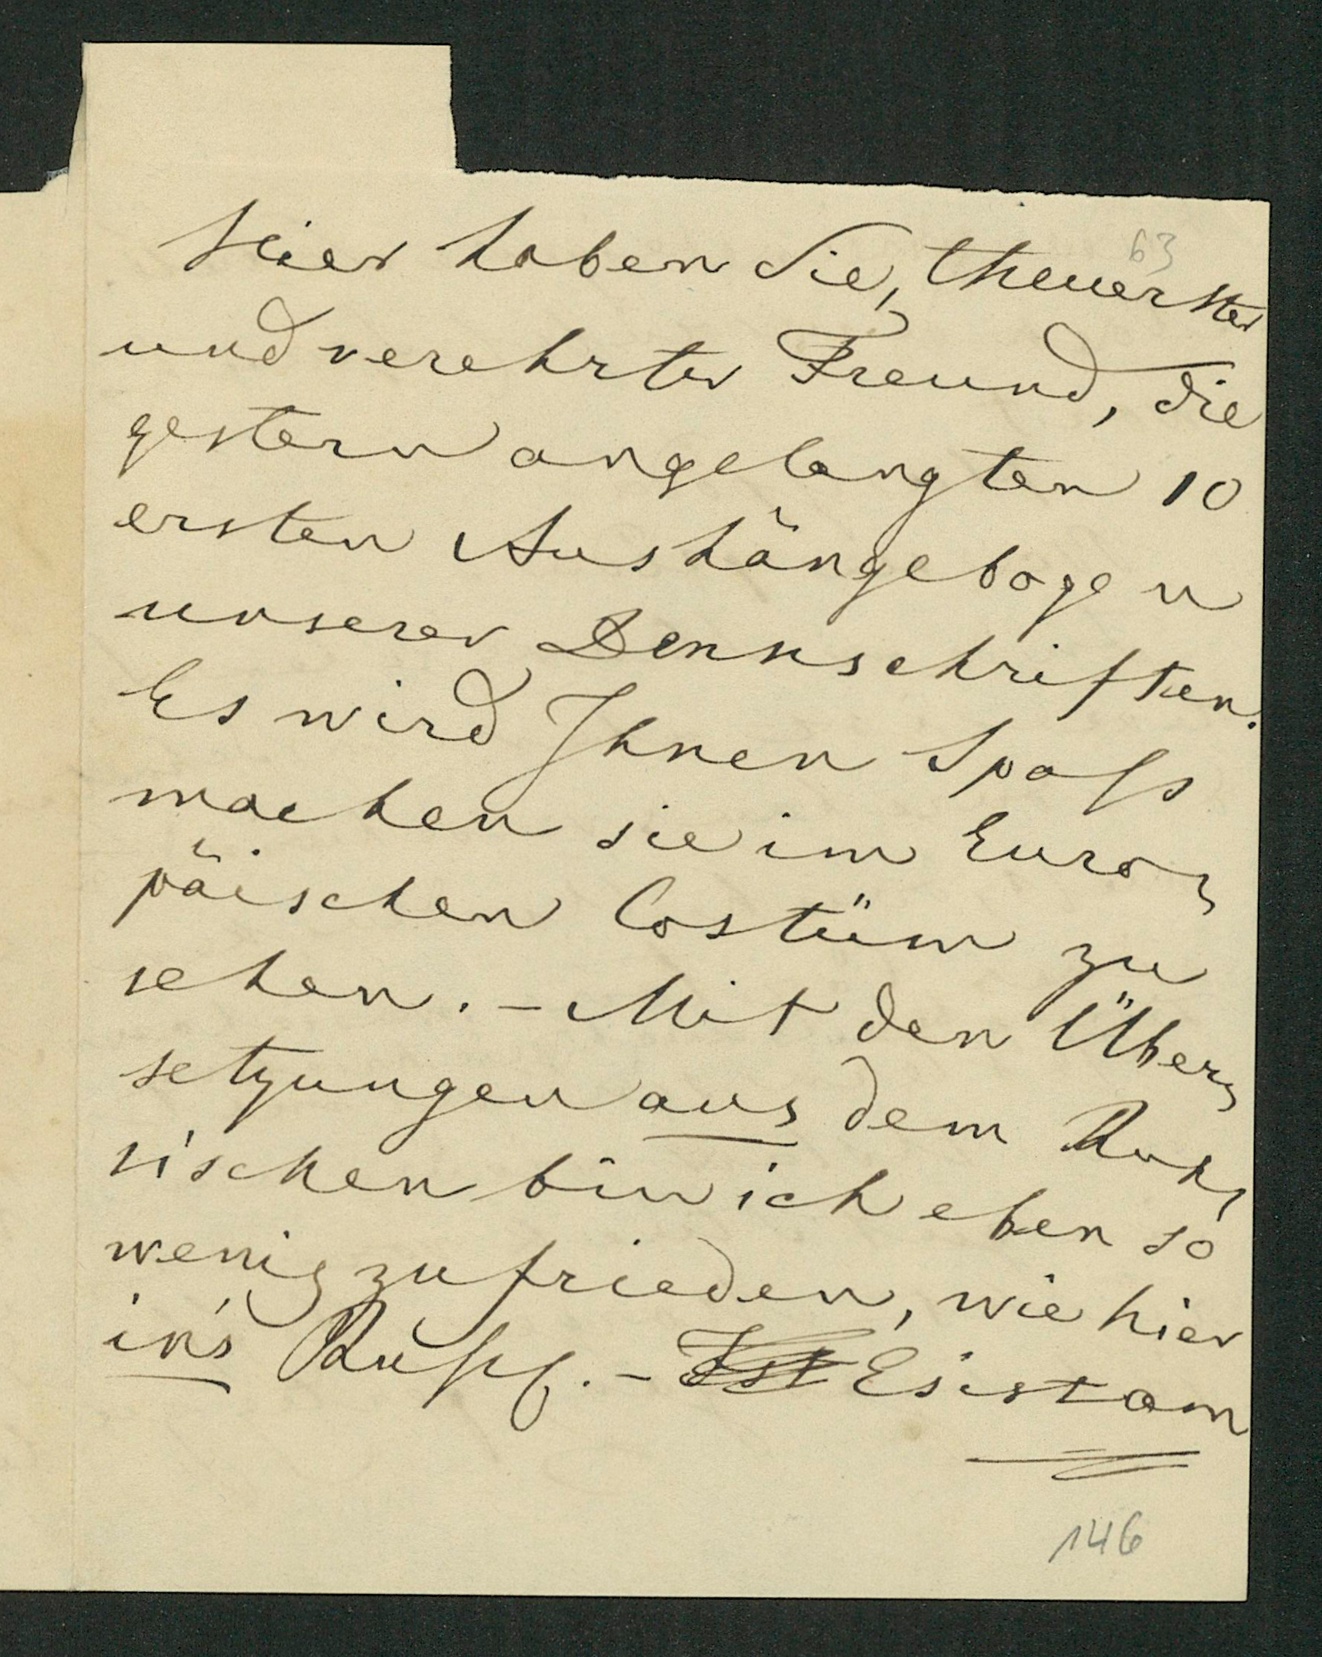 63
Hier haben Sie, theuerster
und verehrter Freund, die
gestern angelangten 10
ersten Aushängebogen
unserer Denkschriften.
Es wird Ihnen Spaß
machen sie im Euro-
päischen Costüm zu
sehen. - Mit den Über-
setzungen aus dem Rus-
sischen bin ich eben so
wenig zufrieden, wie hier
in's Russ. - Ist Es ist am
146